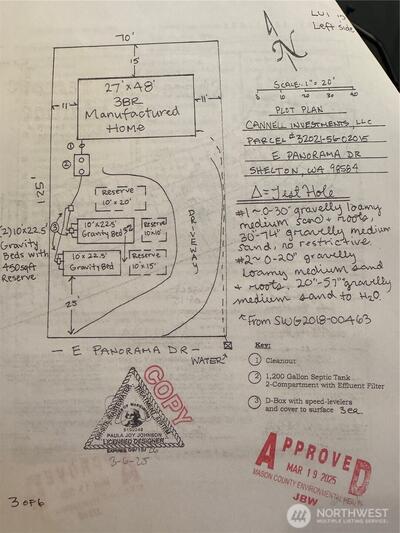 LOT
Left side
70'
15'
N
27' x 48'
3BR
Manufactured
Home
11'
11'
SCALE: 1" = 20'
0 10 20 30 40
PLOT PLAN
CANNELL INVESTMENTS, LLC
PARCEL # 32021-56-02015
E PANORAMA DR
SHELTON, WA 98584
125'
Reserve
10' x 20'
(2) 10x22.5'
Gravity
Beds with
450 sqft
Reserve
10' x 22.5'
Gravity Bed
Reserve
10' x 10'
10 x 22.5'
Gravity Bed
Reserve
10' x 15'
DRIVEWAY
25'
Δ = Test Hole
#1 ~ 0-30" gravelly loamy
medium sand & roots,
30"-74" gravelly medium
sand, no restrictive.
#2 ~ 0-20" gravelly
loamy medium sand
& roots, 20"-57" gravelly
medium sand to H2O.
From SWG2018-00463
— E PANORAMA DR —
WATER
Key:
1 Cleanout
2 1,200 Gallon Septic Tank
2-Compartment with Effluent Filter
3 D-Box with speed-levelers
and cover to surface 3ea
COPY
PAULA JOY JOHNSON
LICENSED DESIGNER
3-6-25
APPROVED
MAR 19 2025
MASON COUNTY ENVIRONMENTAL HEALTH
JBW
3 OF 6
NORTHWEST
MULTIPLE LISTING SERVICE